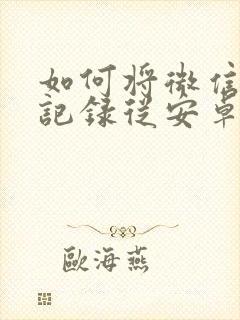 如何将微信
記録從安卓
歐海燕